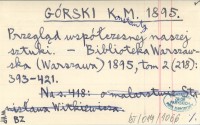 GÓRSKI K. M. 1895.
Przegląd współczesnej naszej
sztuki. – Biblioteka Warszaw-
ska (Warszawa) 1895, tom 2 (218):
393-421.
Na s. 418: o malarstwie Sta-
nisława Witkiewicza.
BZ